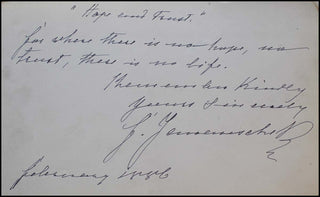 "Hope and trust."
for where there is no hope, no
trust, there is no life.
Remember Kindly
yours Sincerely
February 1886